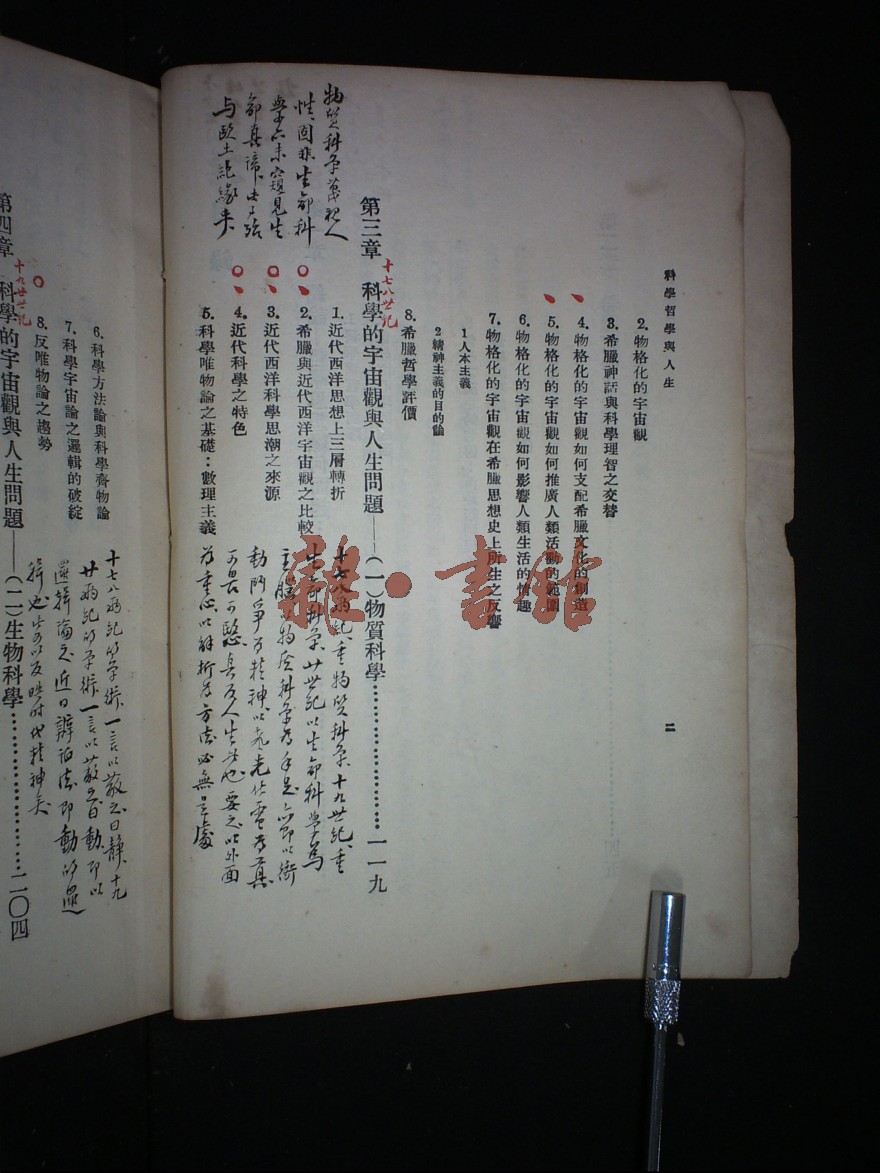 科學哲學與人生
二
2. 物格化的宇宙觀
3. 希臘神話與科學理智之交替
4. 物格化的宇宙觀如何支配希臘文化的創造
5. 物格化的宇宙觀如何推廣人類活動的範圍
6. 物格化的宇宙觀如何影響人類生活的情趣
7. 物格化的宇宙觀在希臘思想史上所生之反響
1 人本主義
2 精神主義的目的論
8. 希臘哲學評價
十七八世紀
第三章 科學的宇宙觀與人生問題——(一)物質科學…………………一一九
1. 近代西洋思想上三層轉折
2. 希臘與近代西洋宇宙觀之比較
3. 近代西洋科學思潮之來源
4. 近代科學之特色
5. 科學唯物論之基礎：數理主義
物質科學蔑視人
性、固非生命科
學亦未窺見生
命真諦、
與歐土絕緣矣
十七八世紀、重物質科學、十九世紀、重
生命科學、廿世紀以生命科學爲
主腦、以物質科學爲手足、
動鬥爭爲精神、以光化電爲
也要之以外面
爲重心、以解析爲方法、必無是處
6. 科學方法論與科學齊物論
7. 科學宇宙論之邏輯的破綻
8. 反唯物論之趨勢
十九世紀
第四章 科學的宇宙觀與人生問題——(二)生物科學…………………二〇四
十七八世紀的學術、一言以蔽之曰靜、十九
廿世紀的學術、一言以蔽之曰動、即以
邏輯論之、近日辯證法即動的邏
輯也、可以反映時代精神矣
雜·書館